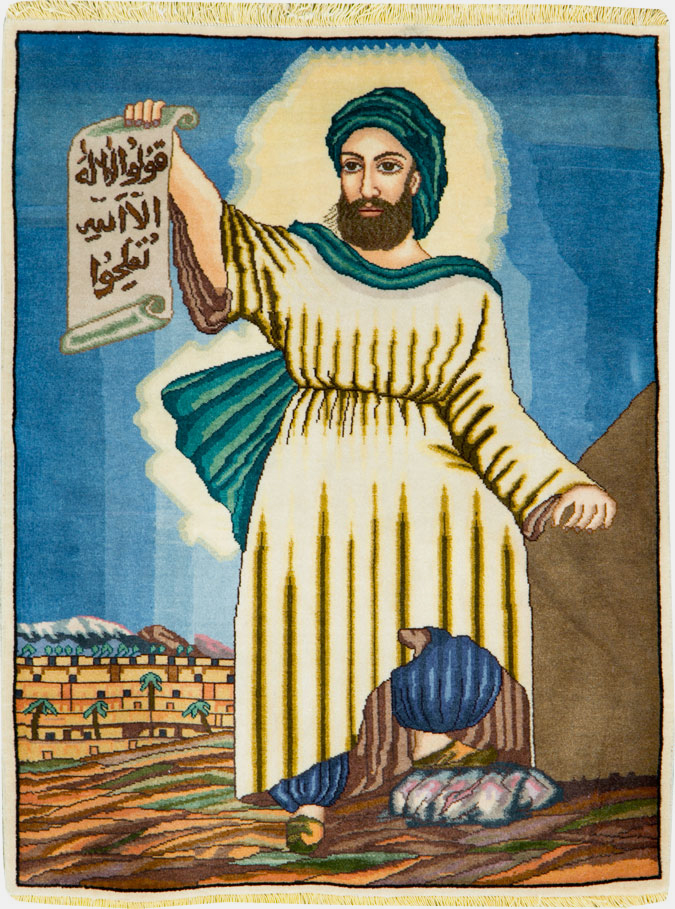 قُولُوا لا اله
الّا اللّه
تُفلِحُوا